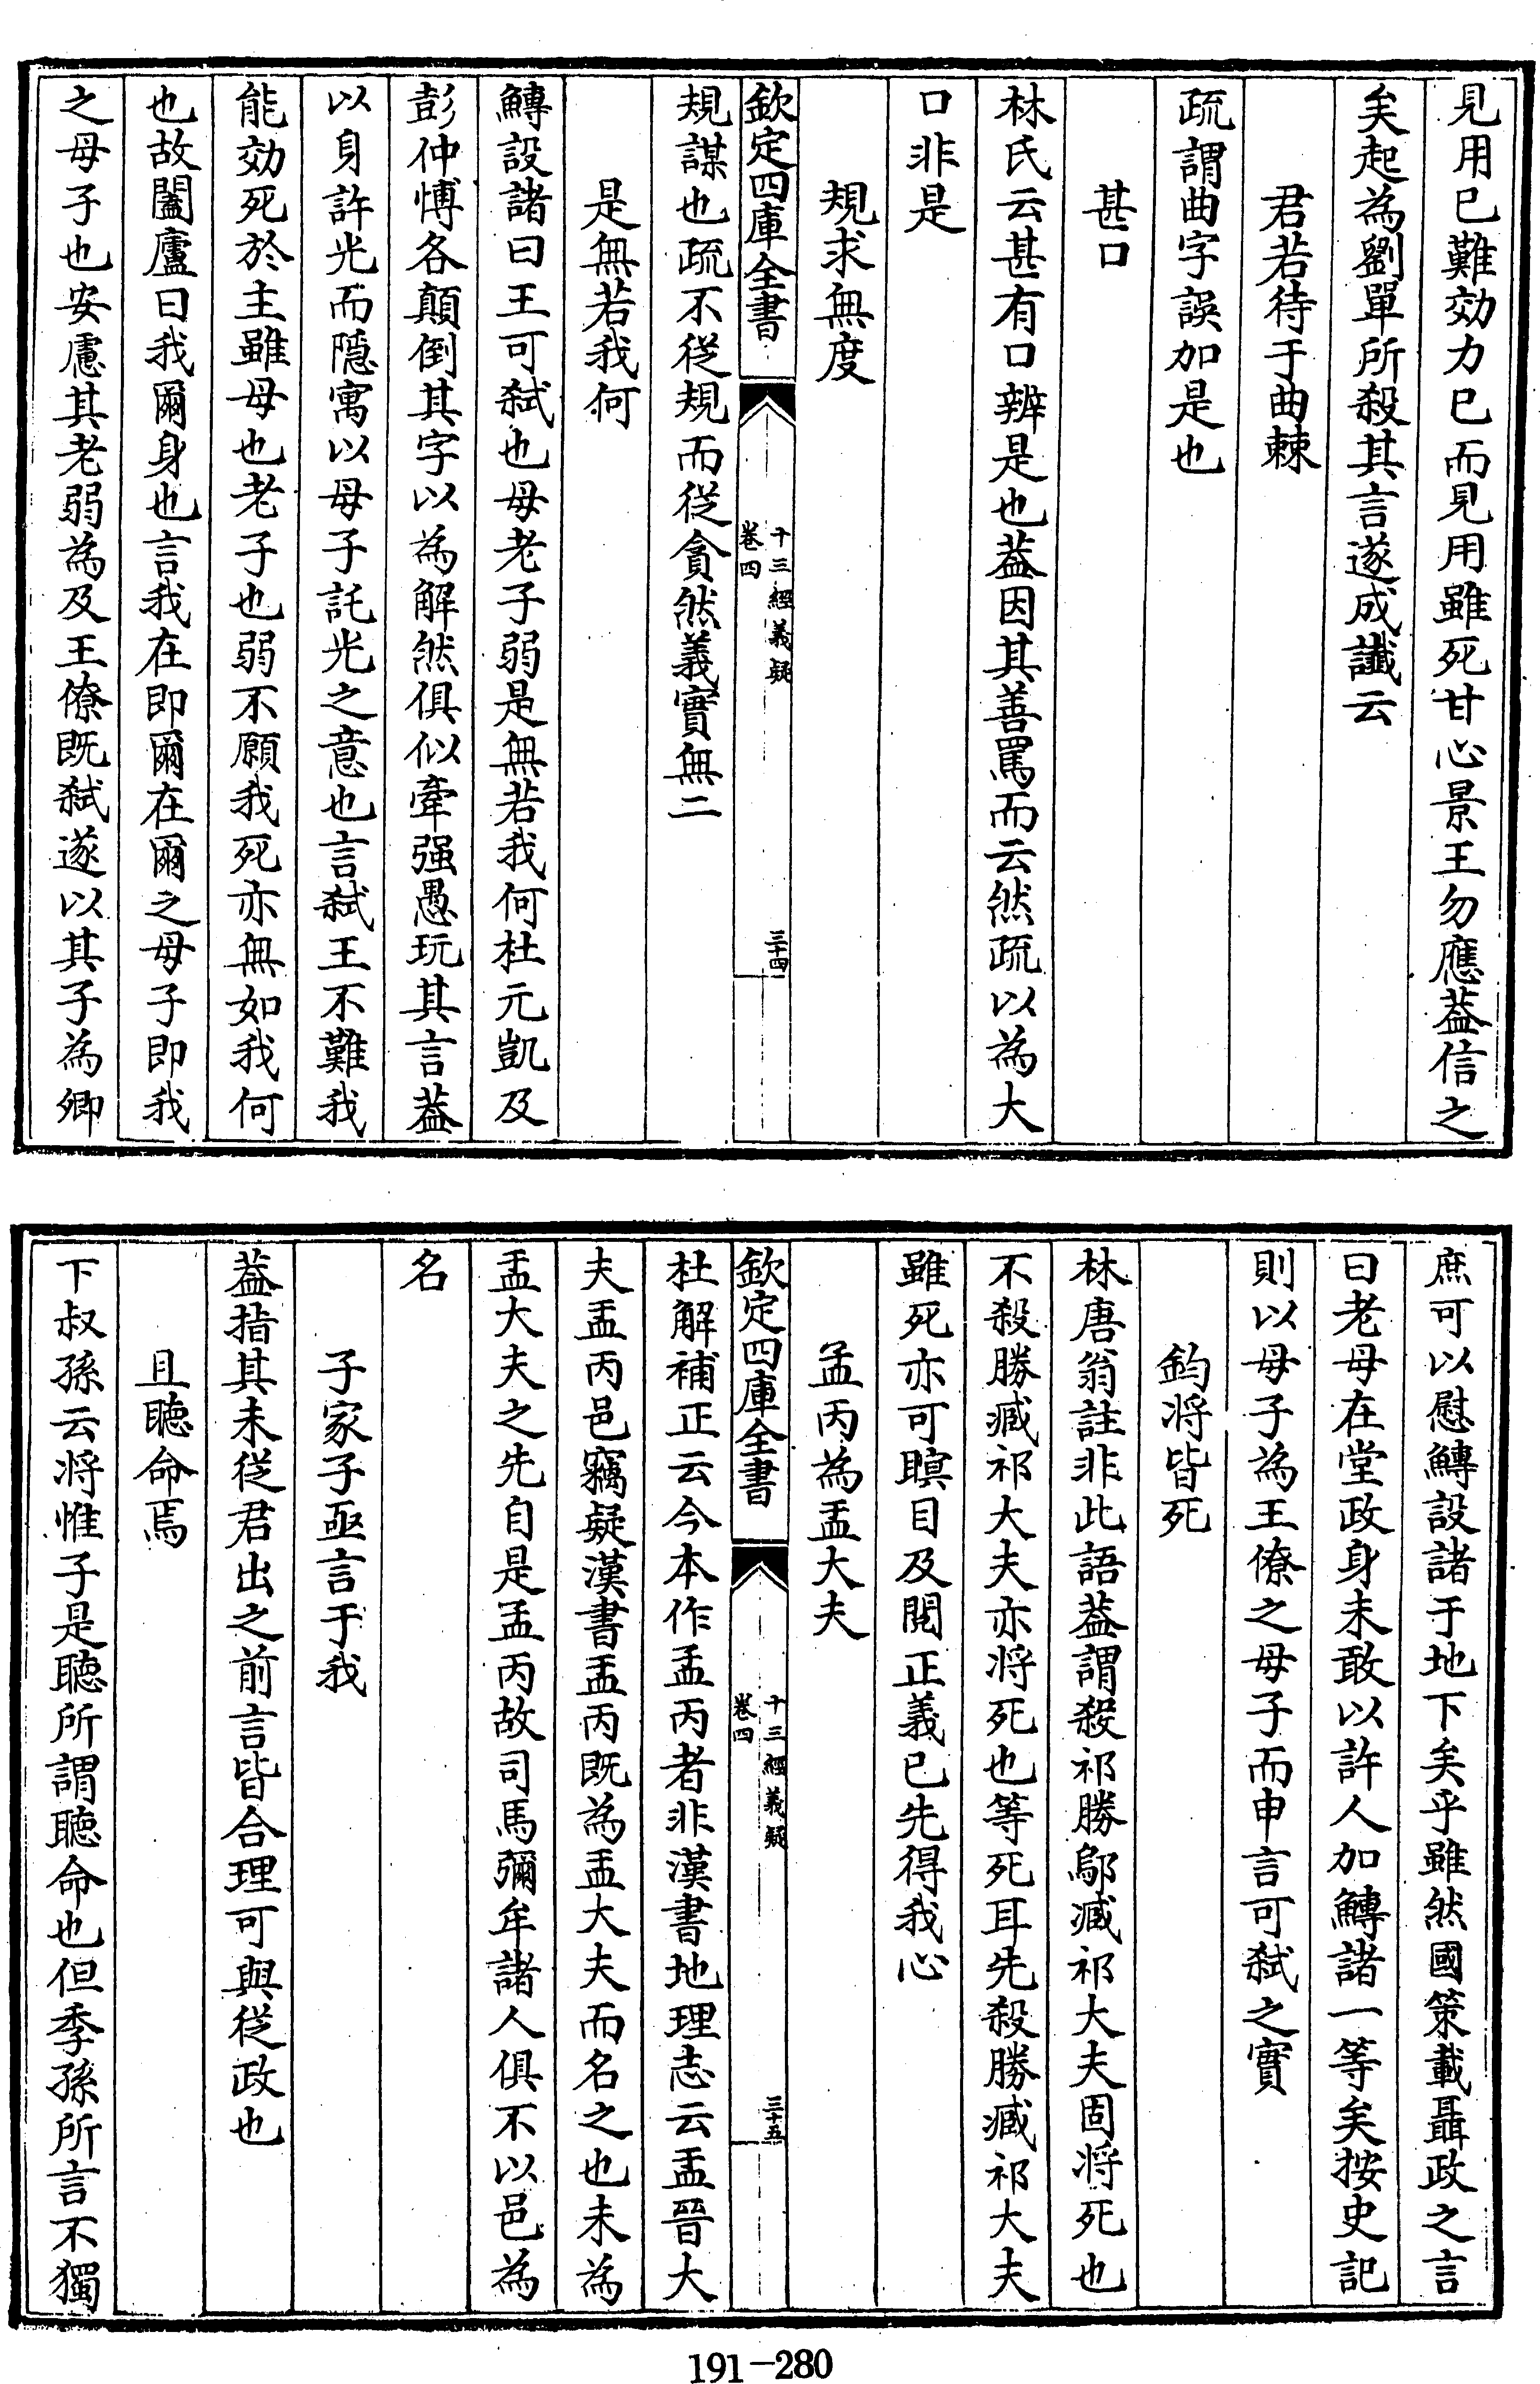 見用已難効力已而見用雖死甘心景王勿應葢信之
矣起為劉單所殺其言遂成讖云
君若待于曲棘
疏謂曲字誤加是也
甚口
林氏云甚有口辨是也葢因其善罵而云然疏以為大
口非是
規求無度
欽定四庫全書
十三經義疑
卷四
三十四
規謀也疏不從規而從貪然義實無二
是無若我何
鱄設諸曰王可弑也母老子弱是無若我何杜元凱及
彭仲愽各顛倒其字以為解然俱似牽强愚玩其言葢
以身許光而隱寓以母子託光之意也言弑王不難我
能効死於主雖母也老子也弱不願我死亦無如我何
也故闔廬曰我爾身也言我在即爾在爾之母子即我
之母子也安慮其老弱為及王僚既弑遂以其子為卿
庶可以慰鱄設諸于地下矣乎雖然國策載聶政之言
曰老母在堂政身未敢以許人加鱄諸一等矣按史記
則以母子為王僚之母子而申言可弑之實
鈞將皆死
林唐翁註非此語葢謂殺祁勝鄔臧祁大夫固將死也
不殺勝臧祁大夫亦將死也等死耳先殺勝臧祁大夫
雖死亦可瞑目及閱正義已先得我心
孟丙為盂大夫
欽定四庫全書
十三經義疑
卷四
三十五
杜解補正云今本作孟丙者非漢書地理志云盂晉大
夫盂丙邑竊疑漢書盂丙既為盂大夫而名之也未為
盂大夫之先自是孟丙故司馬彌牟諸人俱不以邑為
名
子家子亟言于我
葢指其未從君出之前言皆合理可與從政也
且聽命焉
下叔孫云將惟子是聽所謂聽命也但季孫所言不獨
191-280